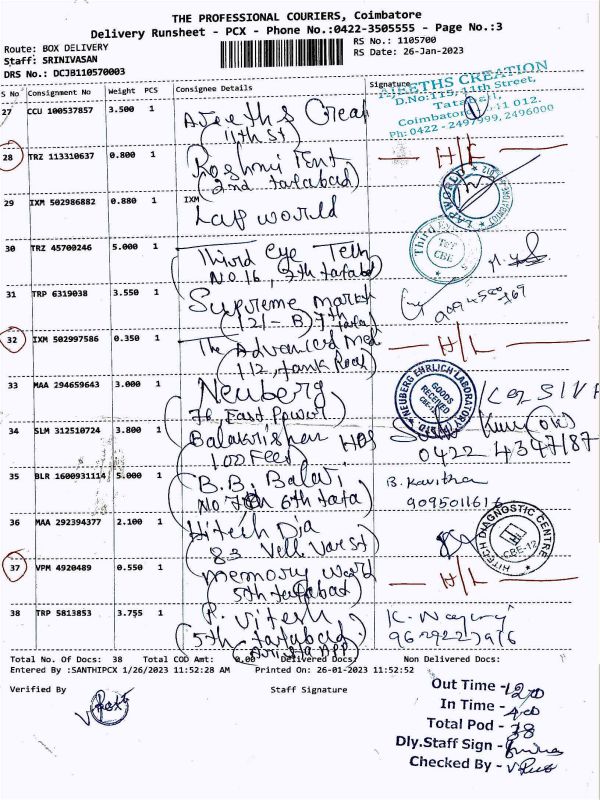 THE PROFESSIONAL COURIERS, Coimbatore
Delivery Runsheet - PCX - Phone No.:0422-3505555 - Page No.:3
Route: BOX DELIVERY
RS No.: 1105700
Staff: SRINIVASAN
RS Date: 26-Jan-2023
DRS No.: DCJB110570003
S No Consignment No Weight PCS Consignee Details Signature
AJEETHS CREATION
D.No:115, 11th Street,
Tatabad,
Coimbatore 11 012.
Ph: 0422 - 2497999, 2496000
27 CCU 100537857 3.500 1 Ajeeths Creat
(11th St)
28 TRZ 113310637 0.800 1 Roshni Tent H/L
(2nd tatabad)
29 IXM 502986882 0.880 1 IXM
Lap world
LAP WORLD
30 TRZ 45700246 5.000 1 Third Eye Tech
No 16, 9th tatabd
Third Eye
CBE
31 TRP 6319038 3.550 1 Supreme Market
(121-B) 7th tatad
32 IXM 502997586 0.350 1 The Advanced Med H/L
112, tank Road
33 MAA 294659643 3.000 1 Neuberg
76, East Power
NEUBERG EHRLICH LABORATORY
GOODS RECEIVED
34 SLM 312510724 3.800 1 Balakrishan HDS
100 Feet
0422 4347187
35 BLR 1600931114 5.000 1 B.B. Balaji
6th tata
B. Kavitha
9095011616
36 MAA 292394377 2.100 1 Hitech Dia
HITECH DIAGNOSTIC CENTRE
CBE-12
37 VPM 4920489 0.550 1 Memory World H/L
(5th tatabad)
38 TRP 5813853 3.755 1 P. Vitesh
(5th tatabad
K.
Total No. Of Docs: 38 Total COD Amt: 0.00 Delivered Docs: Non Delivered Docs:
Entered By :SANTHIPCX 1/26/2023 11:52:28 AM Printed On: 26-01-2023 11:52:52
Verified By Staff Signature
Out Time - 120
In Time - 400
Total Pod - 38
Dly.Staff Sign -
Checked By -